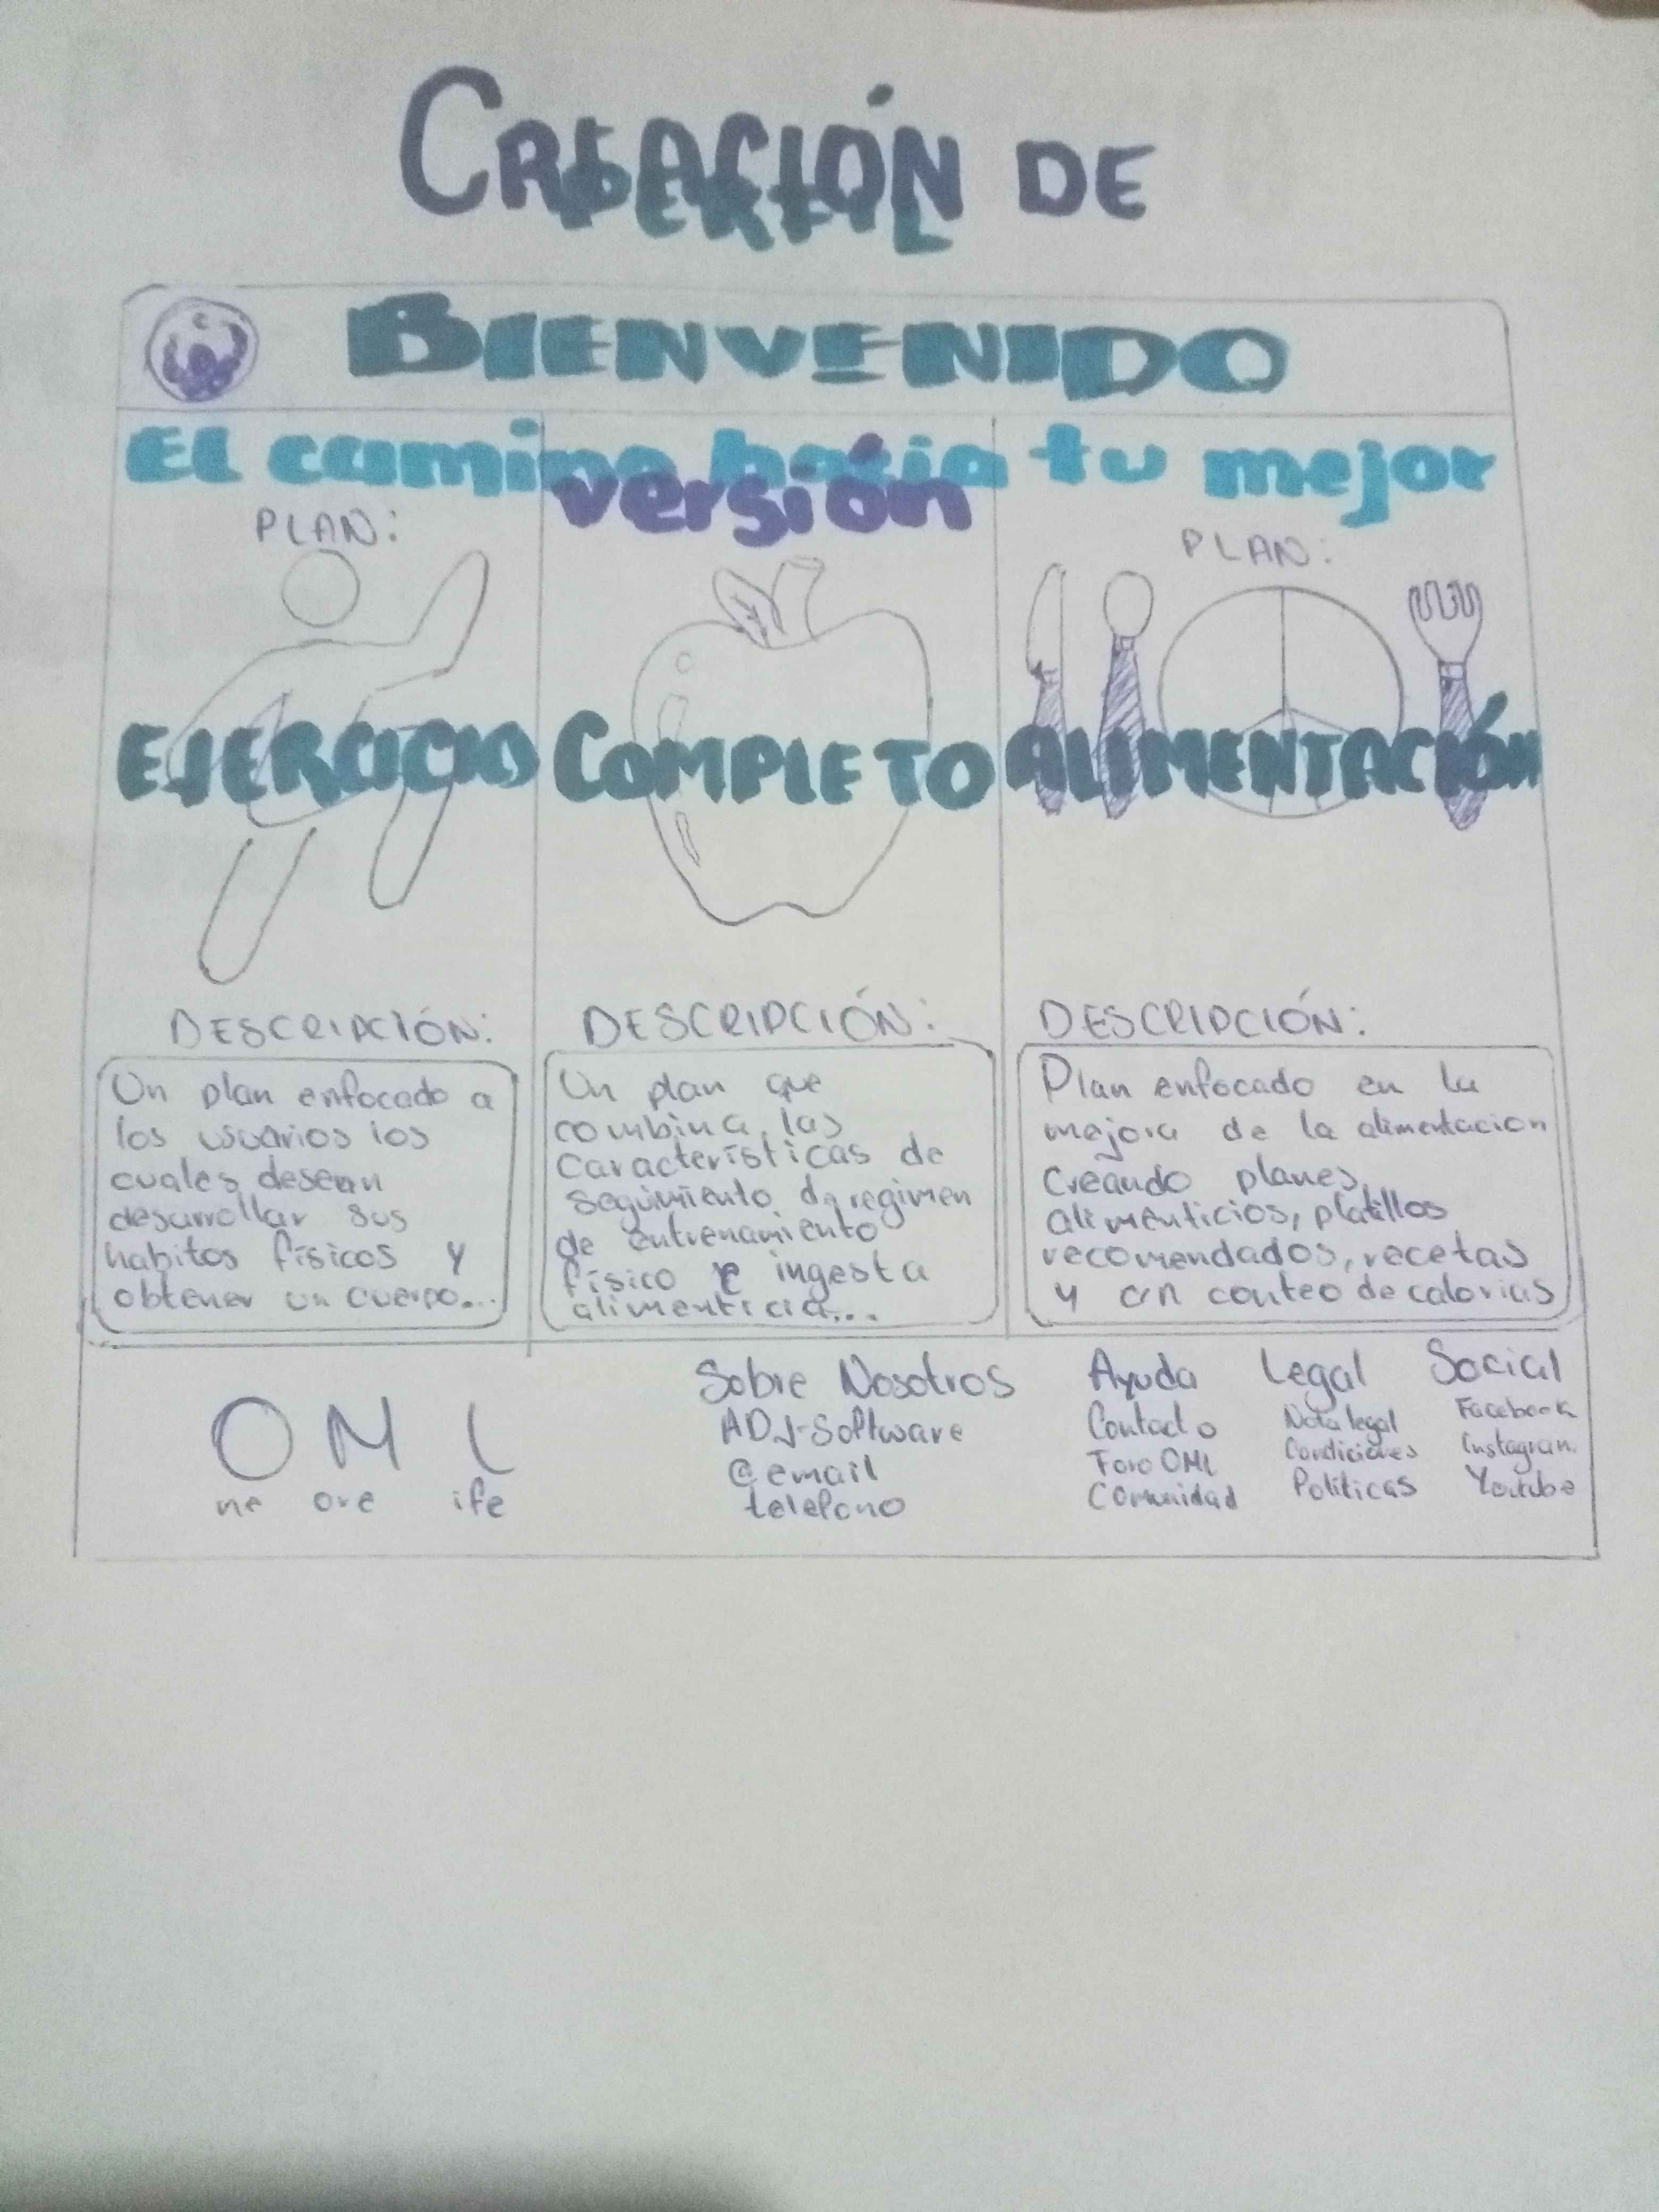 CREACIÓN DE
PERFIL
BIENVENIDO
El camino hacia tu mejor
versión
PLAN:
EJERCICIO
DESCRIPCIÓN:
Un plan enfocado a
los usuarios los
cuales desean
desarrollar sus
habitos físicos y
obtener un cuerpo...
COMPLETO
DESCRIPCIÓN:
Un plan que
combina las
características de
seguimiento de regimen
de entrenamiento
físico e ingesta
alimenticia...
PLAN:
ALIMENTACIÓN
DESCRIPCIÓN:
Plan enfocado en la
mejora de la alimentacion
creando planes
alimenticios, platillos
recomendados, recetas
y un conteo de calorias
O M L
ne ore ife
Sobre Nosotros
ADJ-Software
@email
telefono
Ayuda
Contacto
Foro OML
Comunidad
Legal
Nota legal
Condiciones
Políticas
Social
Facebook
Instagram
Youtube